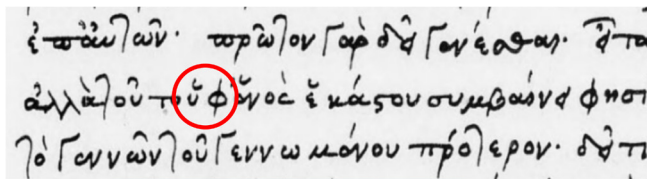 ἐπ αὐτῶν· πρῶτον γὰρ δεῖ γενέσθαι·
ἀλλὰ τοῦτο ἐφ ἑνὸς ἑκάστου συμβαίνει φησι
τὸ γεννῶν τοῦ γεννωμένου πρότερον· δεῖ τι